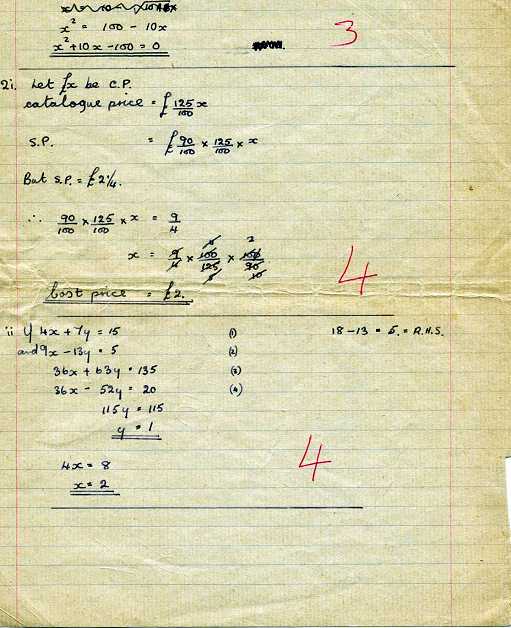 x² = 100 - 10x
x² + 10x - 100 = 0
3
2i. Let £x be C.P.
catalogue price = £ 125/100 x
S.P. = £ 90/100 × 125/100 × x
But S.P. = £2¼.
∴ 90/100 × 125/100 × x = 9/4
x = 9/4 × 100/125 × 100/90
4
Cost price = £2.
ii If 4x + 7y = 15 (1) 18 - 13 = 5. = R.H.S.
and 9x - 13y = 5 (2)
36x + 63y = 135 (3)
36x - 52y = 20 (4)
115y = 115
y = 1
4
4x = 8
x = 2